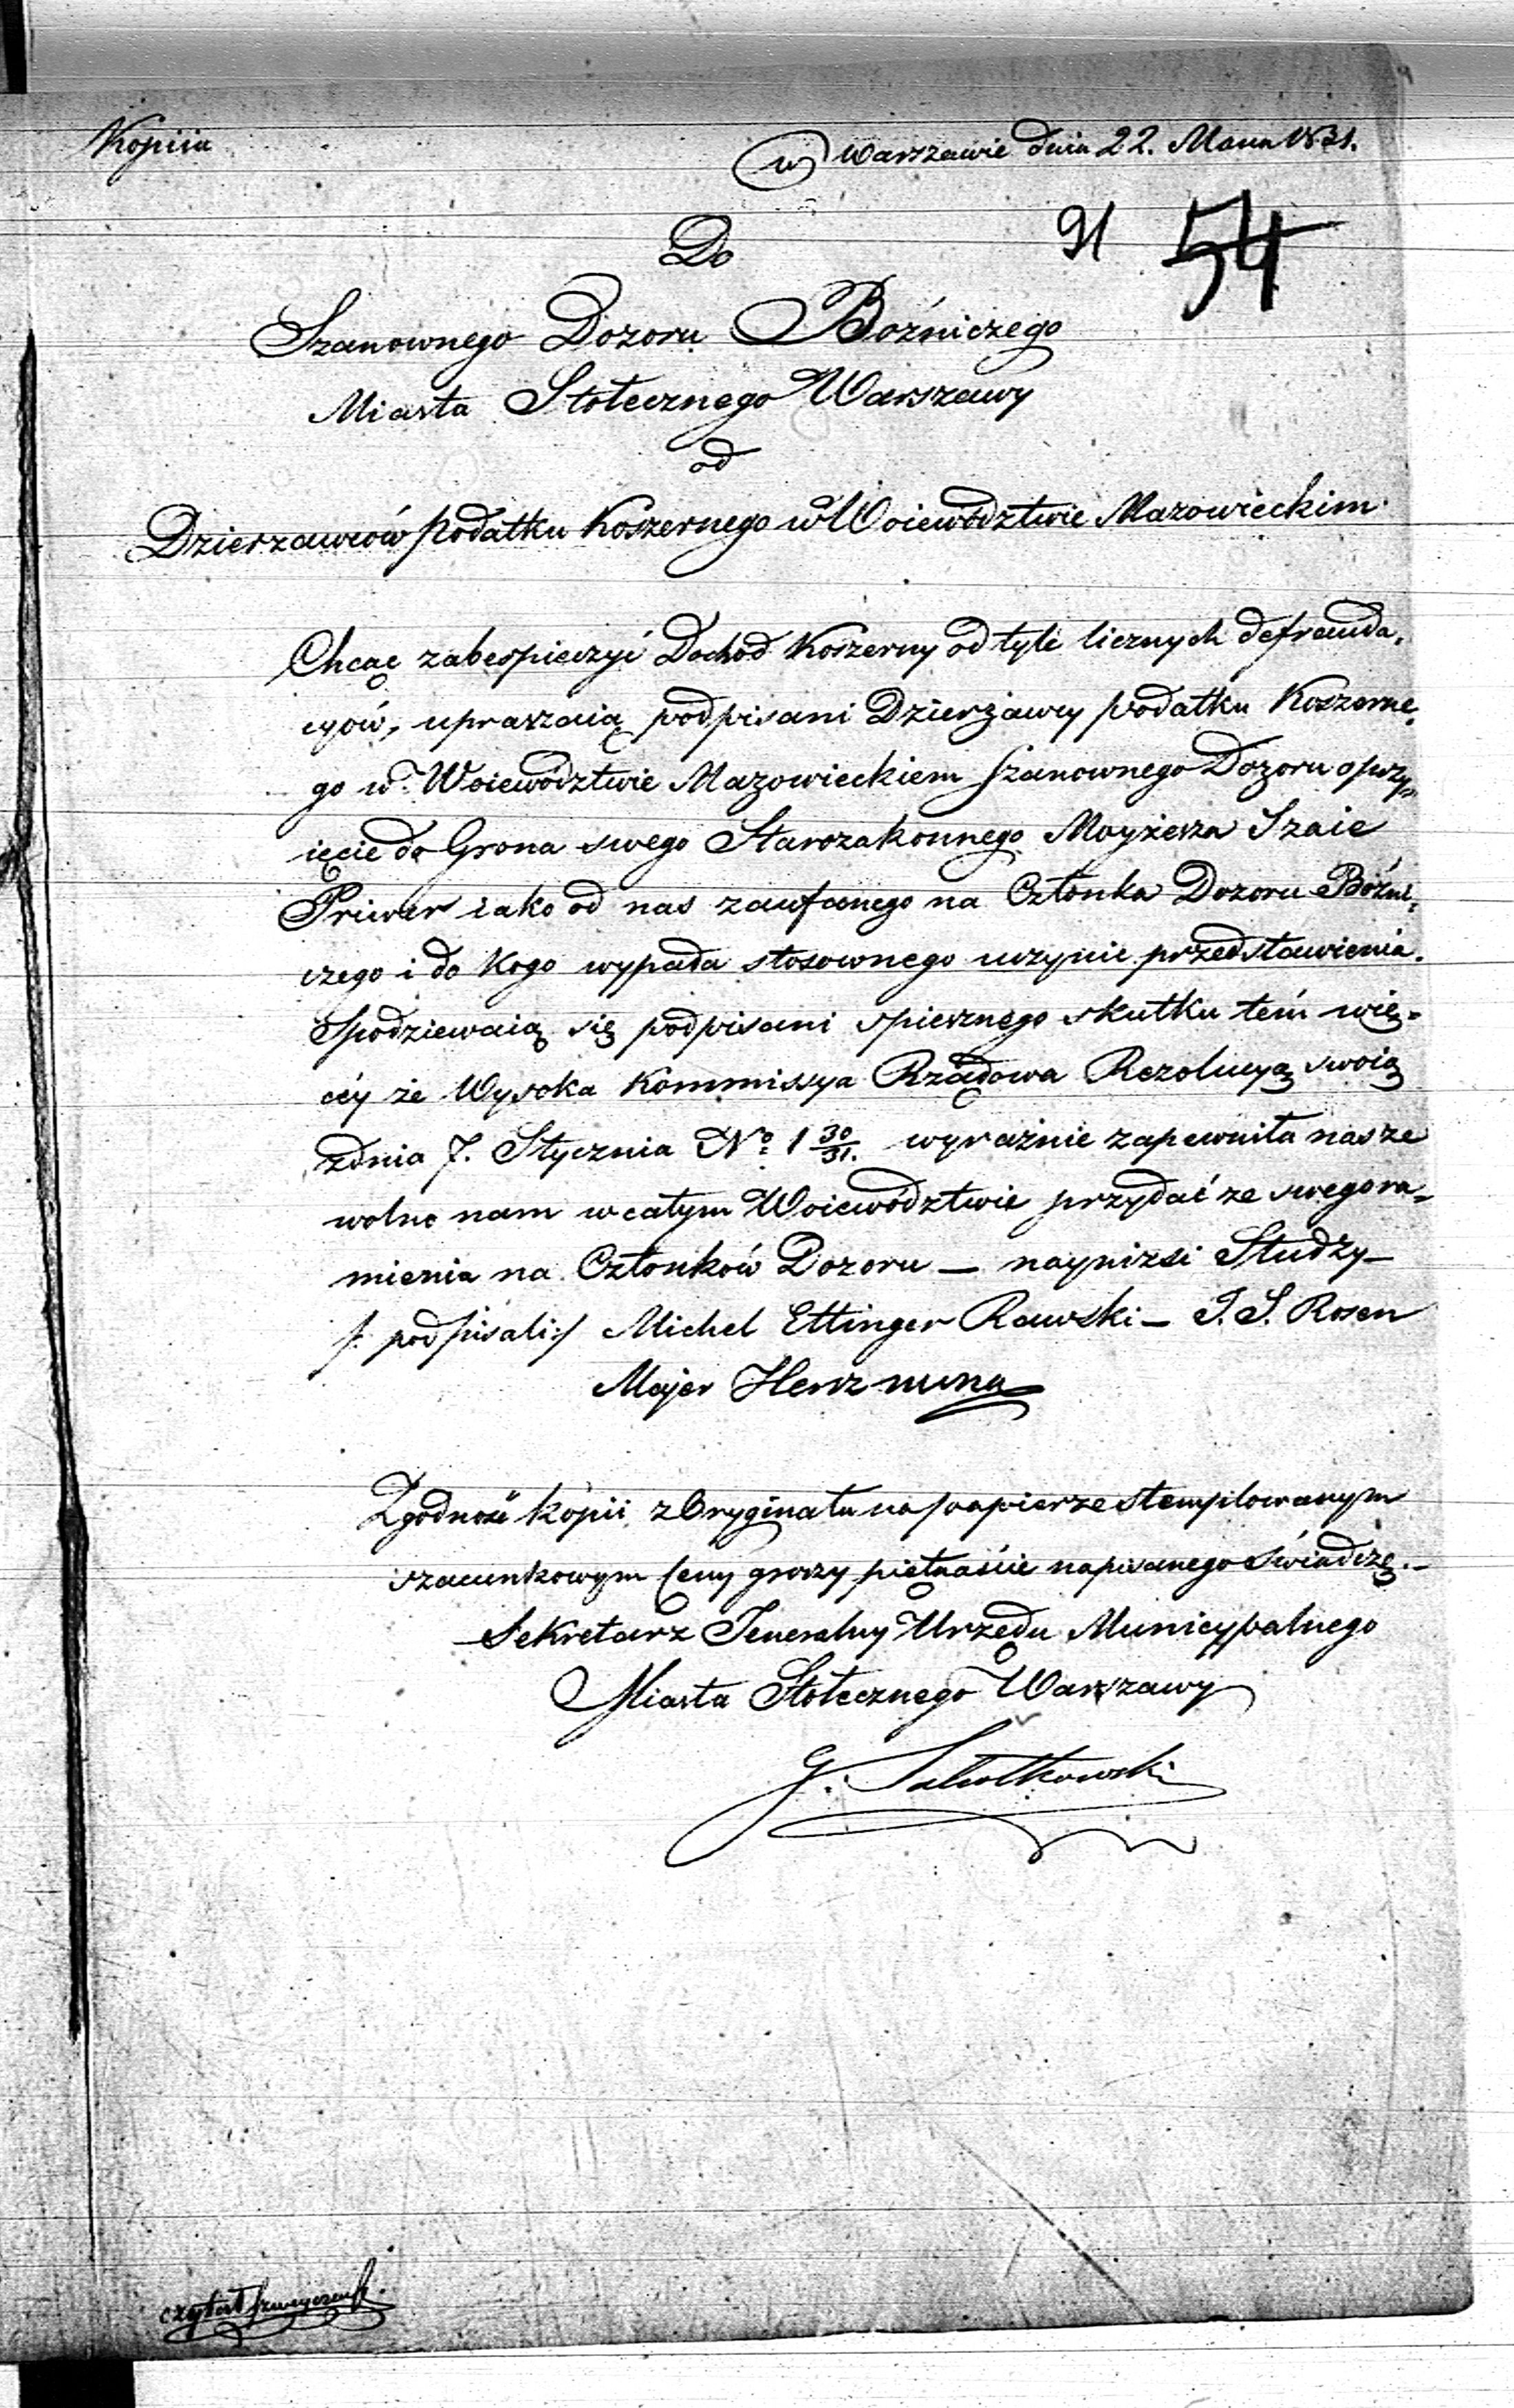 Kopiia
w Warszawie dnia 22. Maia 1831.
91 54
Do
Szanownego Dozoru Bożniczego
Miasta Stołecznego Warszawy
od
Dzierzawców podatku Koszernego w Woiewództwie Mazowieckim
Chcąc zabespieczyć Dochod Koszerny od tyle licznych defrauda,
cyów, upraszaią podpisani Dzierżawcy podatku Koszerne,
go w Woiewództwie Mazowieckiem szanownego Dozoru o przy,
ięcie do Grona swego Starozakonnego Moyżesza Szaie
Priwer iako od nas zaufanego na Członka Dozoru Bóżni,
czego i do kogo wypada stosownego uczynie przedstawienia.
Spodziewaią się podpisani spiesznego skutku tem wię-
cey że Wysoka Kommissya Rządowa Rezolucyą swoią
zdnia 7. Stycznia No 1 30/31. wyraźnie zapewniła nas ze
wolno nam w całym Woiewództwie przydać ze swego ra-
mienia na Członków Dozoru — nayniżsi Studzy —
/: podpisali :/ Michel Ettinger Rawski — J. S. Rosen
Majer Herzmann
Zgodność kopii z Oryginału na papierze stemplowanym
szacunkowym Ceny groszy piętnaście napisanego świadczę. —
Sekretarz Jeneralny Urzędu Municypalnego
Miasta Stołecznego Warszawy
G.
czytał